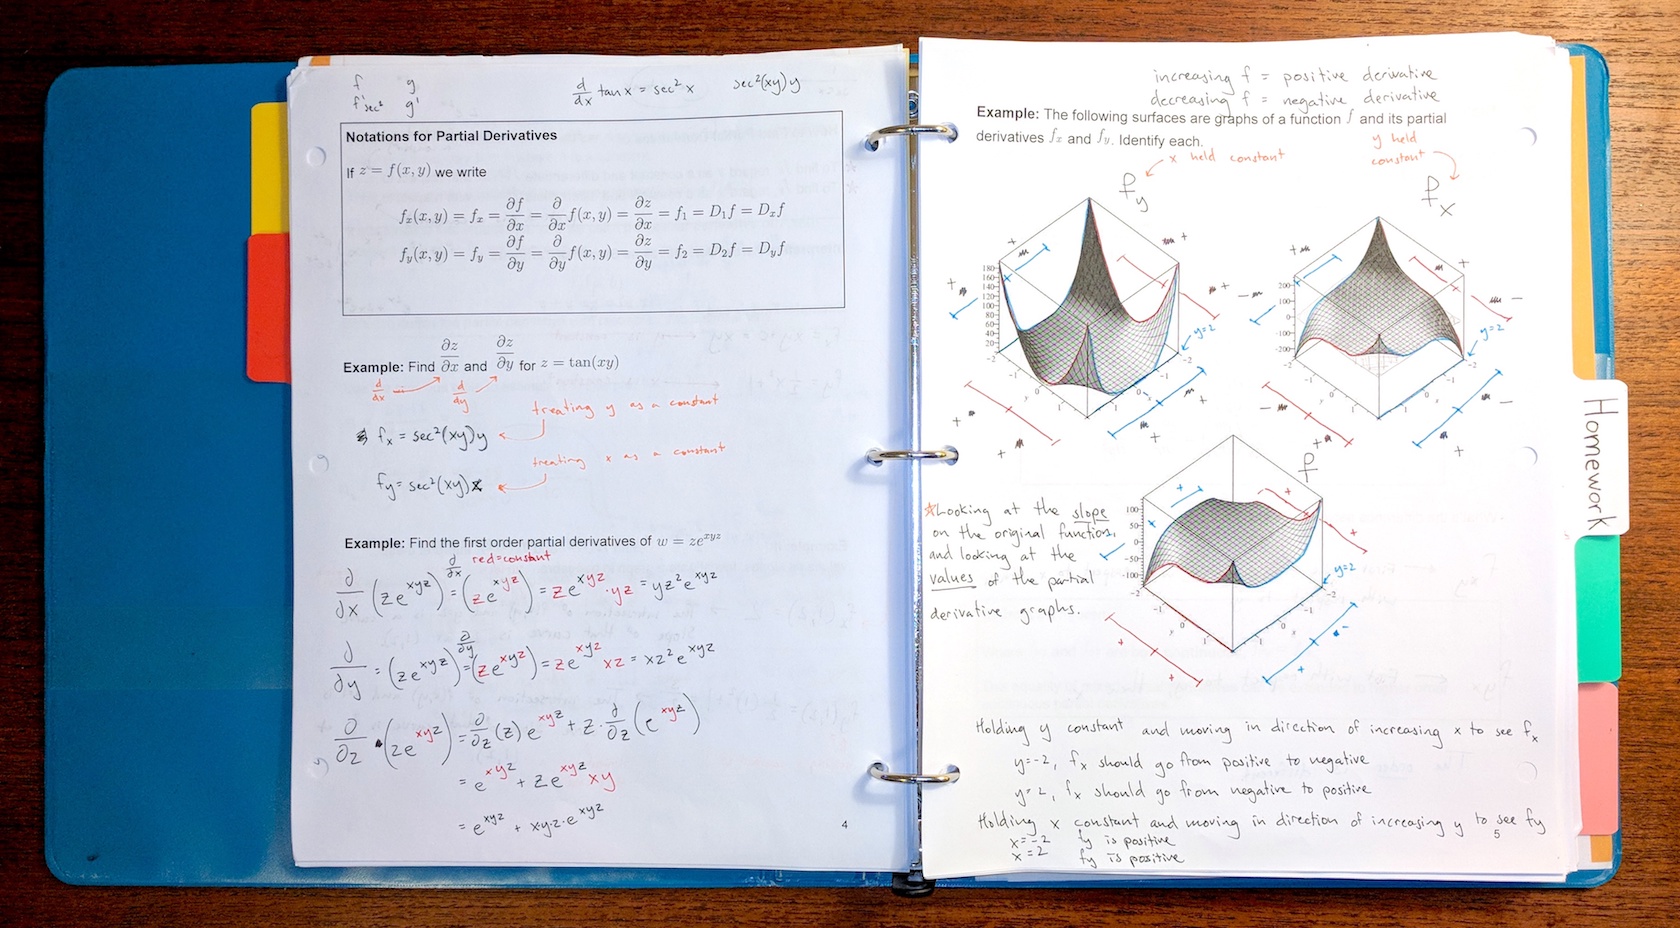 f g
f' sec² g'
d/dx tan x = sec² x sec²(xy) y
Notations for Partial Derivatives
If z = f(x, y) we write
fₓ(x, y) = fₓ = ∂f/∂x = ∂/∂x f(x, y) = ∂z/∂x = f₁ = D₁f = Dₓf
f_y(x, y) = f_y = ∂f/∂y = ∂/∂y f(x, y) = ∂z/∂y = f₂ = D₂f = D_yf
Example: Find ∂z/∂x and ∂z/∂y for z = tan(xy)
d/dx d/dy
treating y as a constant
fₓ = sec²(xy)y
treating x as a constant
f_y = sec²(xy)x
Example: Find the first order partial derivatives of w = ze^{xyz}
red = constant
∂/∂x (ze^{xyz}) = ∂/∂x (ze^{xyz}) = ze^{xyz} · yz = yz²e^{xyz}
∂/∂y = (ze^{xyz}) = ∂/∂y (ze^{xyz}) = ze^{xyz} xz = xz²e^{xyz}
∂/∂z · (ze^{xyz}) = ∂/∂z (z) e^{xyz} + z · ∂/∂z (e^{xyz})
= e^{xyz} + ze^{xyz} xy
= e^{xyz} + x·y·z·e^{xyz}
4
increasing f = positive derivative
decreasing f = negative derivative
Example: The following surfaces are graphs of a function f and its partial
derivatives fₓ and f_y. Identify each.
x held constant
y held
constant
f_y
fₓ
180
160
140
120
100
80
60
40
20
-2 -1 0 1 y
1 -1 -2
y=2
200
100
0
-100
-200
-2 -1 0 1 y
1 0 x -1 -2
y=2
f
100
50
0
-50
-100
-2 -1 y 0 1
1 0 x -1 -2
y=2
*Looking at the slope
on the original function,
and looking at the
values of the partial
derivative graphs.
Holding y constant and moving in direction of increasing x to see fₓ
y=-2, fₓ should go from positive to negative
y=2, fₓ should go from negative to positive
Holding x constant and moving in direction of increasing y to see f_y
x=-2 f_y is positive
x=2 f_y is positive
5
Homework